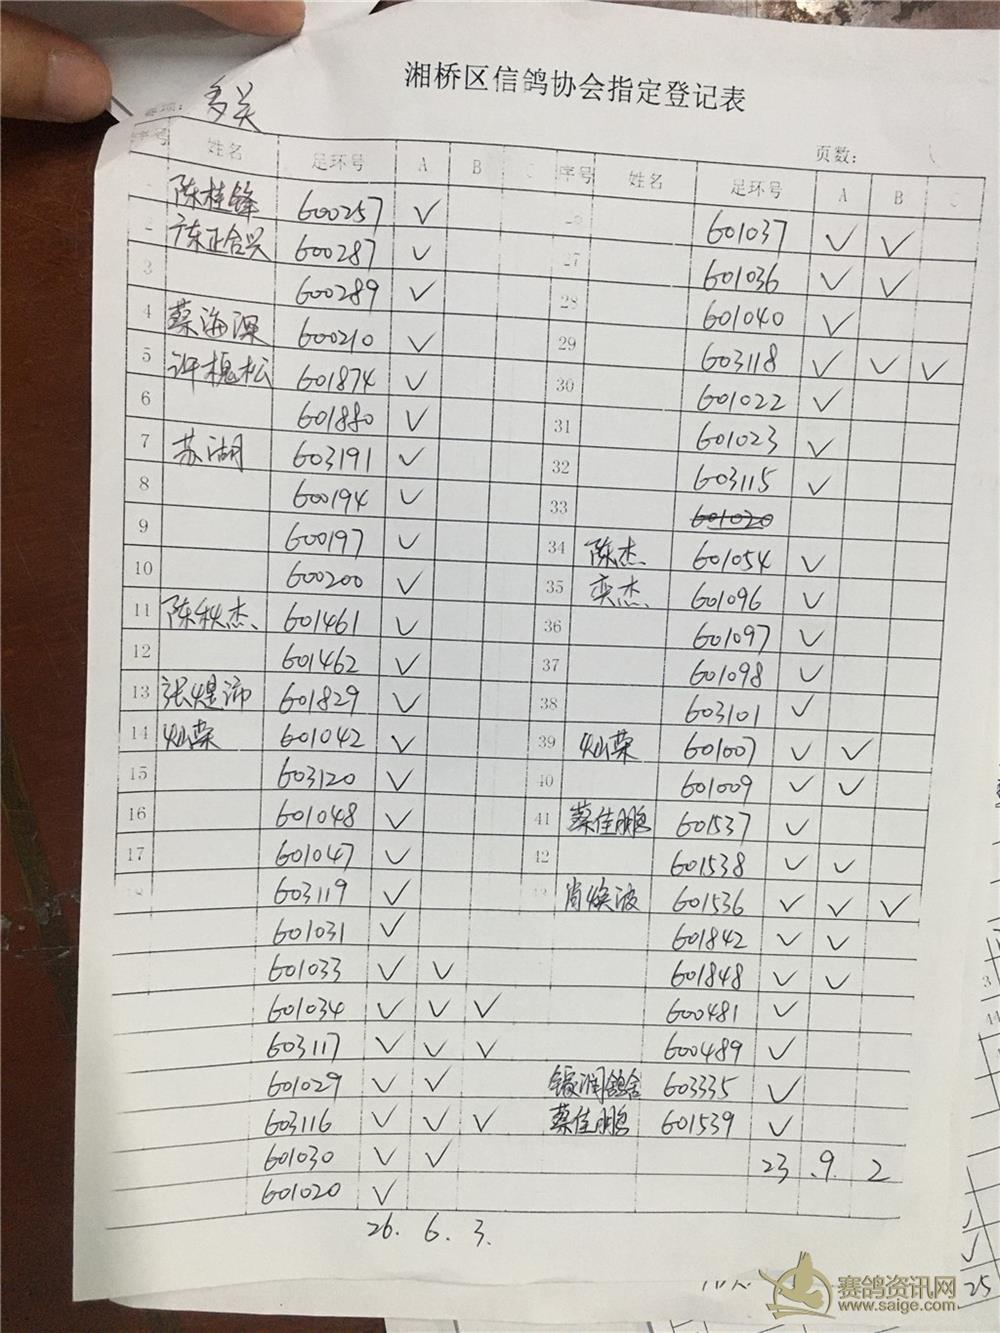 湘桥区信鸽协会指定登记表
多关
页数:
序号 姓名 足环号 A B C 序号 姓名 足环号 A B C
陈桂锋 600257 ✓
2 广东正合兴 600287 ✓
3 600289 ✓
4 蔡海深 600210 ✓
5 许槐松 601874 ✓
6 601880 ✓
7 苏湖 603191 ✓
8 600194 ✓
9 600197 ✓
10 600200 ✓
11 陈秋杰 601461 ✓
12 601462 ✓
13 张煜沛 601829 ✓
14 灿荣 601042 ✓
15 603120 ✓
16 601048 ✓
17 601047 ✓
18 603119 ✓
601031 ✓
601033 ✓ ✓
601034 ✓ ✓ ✓
603117 ✓ ✓ ✓
601029 ✓ ✓
603116 ✓ ✓ ✓
601030 ✓ ✓
601020 ✓
26. 6. 3.
601037 ✓ ✓
27 601036 ✓ ✓
28 601040 ✓
29 603118 ✓ ✓ ✓
30 601022 ✓
31 601023 ✓
32 603115 ✓
33 601020
34 陈杰 601054 ✓
35 奕杰 601096 ✓
36 601097 ✓
37 601098 ✓
38 603101 ✓
39 灿荣 601007 ✓ ✓
40 601009 ✓ ✓
41 蔡佳鹏 601537 ✓
42 601538 ✓ ✓
43 肖焕波 601536 ✓ ✓ ✓
601842 ✓ ✓
601848 ✓ ✓
600481 ✓
600489 ✓
润鸽舍 603335 ✓
蔡佳鹏 601539 ✓
23 . 9. 2
25
赛鸽资讯网
www.saige.com